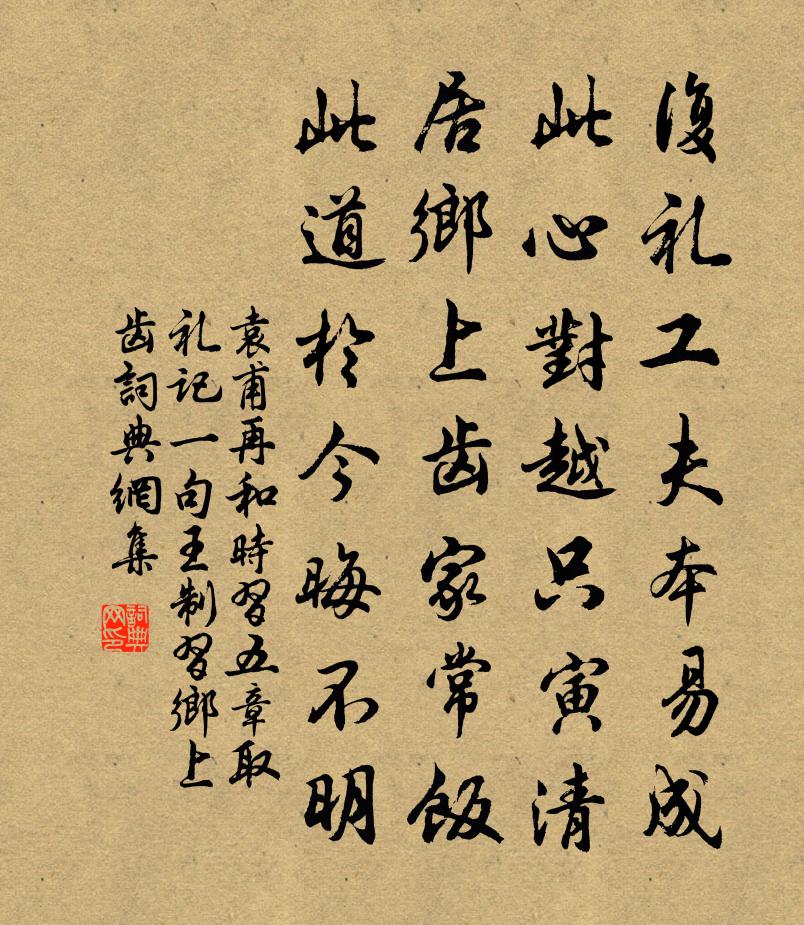 復礼工夫本易成
此心對越只寅清
居鄉上齿家常飯
此道於今晦不明
袁甫再和時習五章取
礼记一句王制習鄉上
齿詞典網集
詞典网印